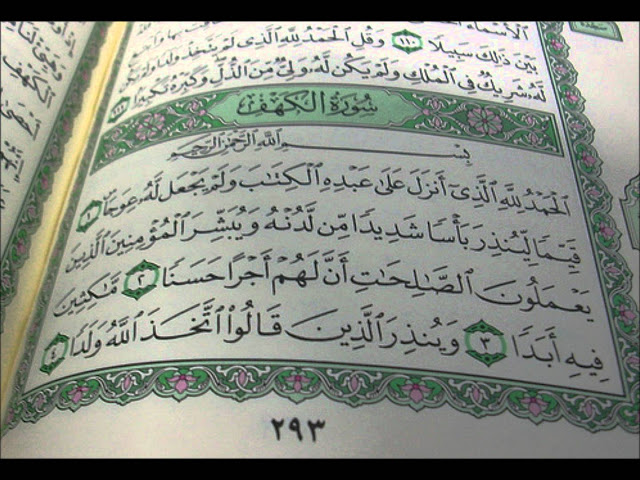 الْأَسْمَاءُ
بَيْنَ ذَٰلِكَ سَبِيلًا ١١٠ وَقُلِ الْحَمْدُ لِلَّهِ الَّذِي لَمْ يَتَّخِذْ وَلَدًا وَلَمْ يَكُن
لَّهُ شَرِيكٌ فِي الْمُلْكِ وَلَمْ يَكُن لَّهُ وَلِيٌّ مِّنَ الذُّلِّ وَكَبِّرْهُ تَكْبِيرًا ١١١
سُورَةُ الْكَهْفِ
بِسْمِ اللَّهِ الرَّحْمَٰنِ الرَّحِيمِ
الْحَمْدُ لِلَّهِ الَّذِي أَنزَلَ عَلَىٰ عَبْدِهِ الْكِتَٰبَ وَلَمْ يَجْعَل لَّهُ عِوَجًا ١
قَيِّمًا لِّيُنذِرَ بَأْسًا شَدِيدًا مِّن لَّدُنْهُ وَيُبَشِّرَ الْمُؤْمِنِينَ الَّذِينَ
يَعْمَلُونَ الصَّٰلِحَٰتِ أَنَّ لَهُمْ أَجْرًا حَسَنًا ٢ مَّٰكِثِينَ
فِيهِ أَبَدًا ٣ وَيُنذِرَ الَّذِينَ قَالُوا اتَّخَذَ اللَّهُ وَلَدًا ٤
٢٩٣